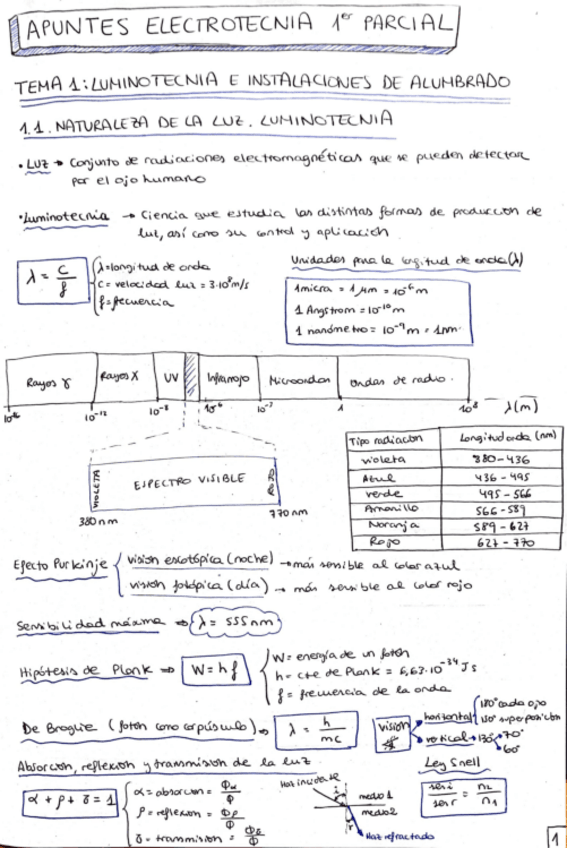 APUNTES ELECTROTECNIA 1er PARCIAL
TEMA 1: LUMINOTECNIA E INSTALACIONES DE ALUMBRADO
1.1. NATURALEZA DE LA LUZ. LUMINOTECNIA
• LUZ → Conjunto de radiaciones electromagnéticas que se pueden detectar
por el ojo humano
• Luminotecnia → Ciencia que estudia las distintas formas de producción de
luz, así como su control y aplicación.
λ = c/f
λ = longitud de onda
c = velocidad luz = 3·10⁸ m/s
f = frecuencia
Unidades para la longitud de onda (λ)
1 micra = 1 μm = 10⁻⁶ m
1 Angstrom = 10⁻¹⁰ m
1 nanómetro = 10⁻⁹ m = 1nm.
Rayos γ Rayos X UV Infrarrojo Microondas Ondas de radio.
10⁻¹⁶ 10⁻¹² 10⁻⁸ 10⁻⁶ 10⁻² 1 10⁸ λ(m)
VIOLETA ESPECTRO VISIBLE ROJO
380 nm 770 nm
Tipo radiación Longitud onda (nm)
violeta 380-436
Azul 436-495
verde 495-566
Amarillo 566-589
Naranja 589-627
Rojo 627-770
Efecto Purkinje
visión escotópica (noche) → más sensible al color azul
visión fotópica (día) → más sensible al color rojo
Sensibilidad máxima ⇒ λ = 555nm
Hipótesis de Plank ⇒ W = h f
W = energía de un fotón
h = cte de Plank = 6,63·10⁻³⁴ J s
f = frecuencia de la onda
De Broglie (fotón como corpúsculo) ⇒ λ = h/mc
visión
horizontal 180° cada ojo
120° superposición
vertical → 130° 70°
60°
Absorción, reflexión y transmisión de la luz
α + ρ + δ = 1
α = absorción = Φα/Φ
ρ = reflexión = Φρ/Φ
δ = transmisión = Φδ/Φ
Haz incidente
i
medio 1
medio 2
r
Haz refractado
Ley Snell
sen i / sen r = n₂/n₁
1